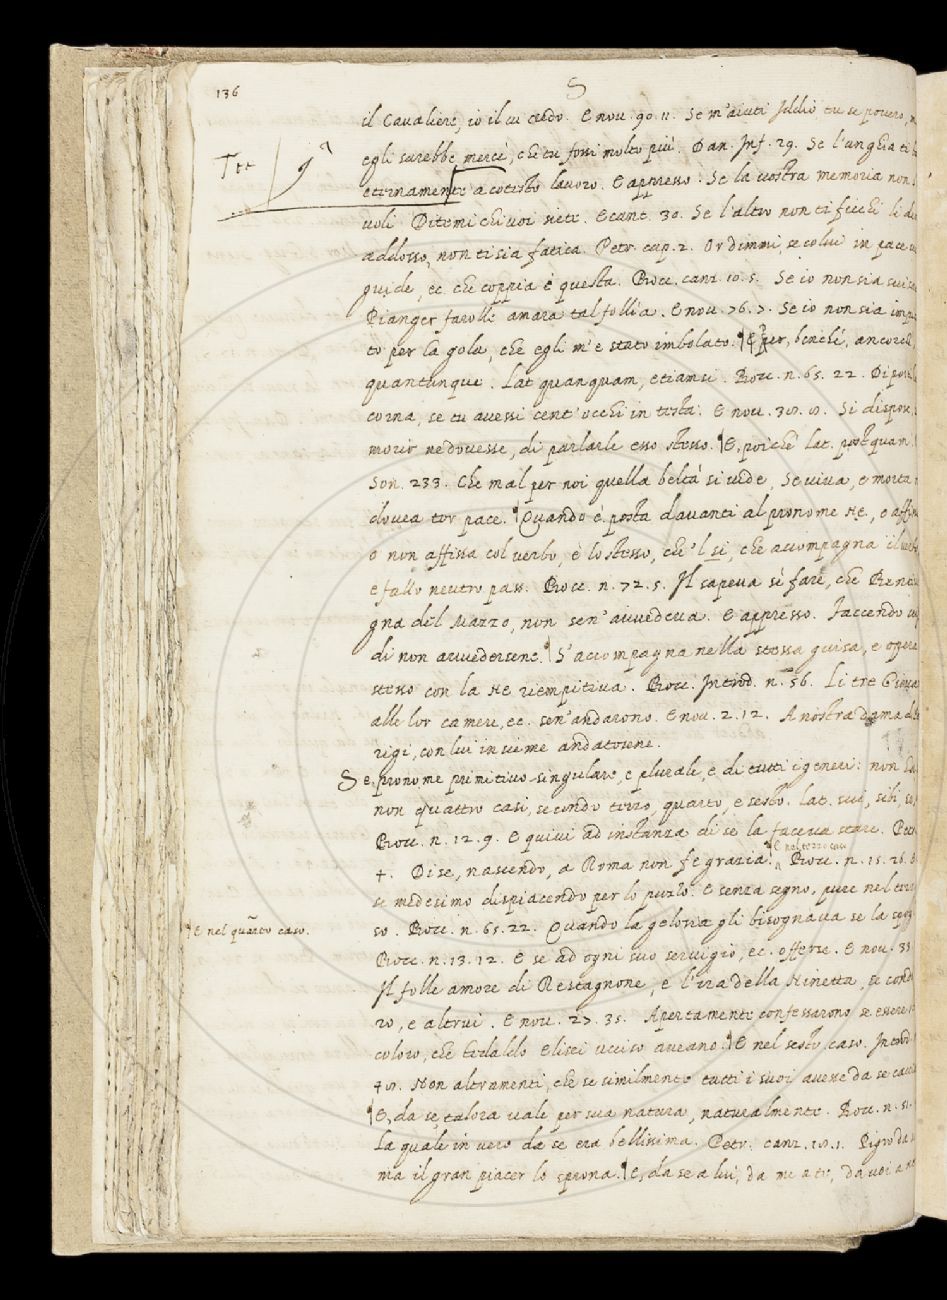 136
S
il Cavaliere, io il ti credo. E nov. 90. 11. Se m'aiuti Iddio tu se povero, m
egli sarebbe mercè, che tu fossi molto più. Dan. Inf. 29. Se l'unghia ti b
eternamente a cotesto lavoro. E appresso. Se la vostra memoria non
voli Ditemi chi voi siete. E cant. 30. Se l'altro non ti ficchi li de
addosso, non ti sia fatica. Petr. cap. 2. Or dimmi, se colui in pace
guide, ec. che coppia è questa. Bocc. canz. 10. 5. Se io non sia
Pianger farolle amara tal follia. E nov. 76. 7. Se io non sia
to per la gola, che egli m'è stato imbolato. E per, benché, ancorch
quantunque. Lat. quanquam, etiamsi. Bocc. n. 65. 22. Di por le
corna, se tu avessi cent'occhi in testa. E nov. Si dispose,
morir ne dovesse, di parlarle esso stesso. E, poiche Lat. postquam
Son. 233. Che mal per noi quella beltà si vide, Se viva, e morta
dovea tor pace. Quando è posta davanti al pronome Ne, e affi
o non affissa col verbo, è lo stesso, che 'l si, che accompagna il verbo
e fallo neutro pass. Bocc. n. 72. 5. Il sapeva sè fare, che
gna del Mazzo, non sen'avvedeva. E appresso. Faccendo
di non avvedersene. S'accompagna nella stessa guisa, e opera
stesso con la Ne riempitiva. Bocc. Introd. n. 56. Li tre
alle lor camere, ec. sen'andarono. E nov. 2. 12. A nostra dama
rigi, con lui insieme andatosene.
Se, pronome primitivo singulare, e plurale, e di tutti i generi: non ha
non quattro casi, secondo terzo, quarto, e sesto. Lat. sui, sibi, se,
Bocc. n. 12. 9. E quivi ad instanza di se la faceva stare. Petr
4. Di se, nascendo, a Roma non fe grazia. Bocc. n. 15. 26.
E nel terzo caso
se medesimo dispiacendo per lo puzzo. E senza segno, pure nel terzo
so. Bocc. n. 65. 22. Quando la gelosia gli bisognava se la
E nel quarto caso.
Bocc. n. 13. 12. E se ad ogni suo servigio, ec. offerse. E nov. 33
Il folle amore di Restagnone, e l'ira della Ninetta, se cond
ro, e altrui. E nov. 27. 35. Apertamente confessarono se essere
coloro, che Tedaldo Elisei ucciso aveano. E nel sesto caso. Introd.
Non altramenti, che se similmente tutti i suoi avere da se
E, da se, talora vale per sua natura, naturalmente. Bocc. n. 51.
La quale in vero da se era bellissima. Petr. canz. Pigro da
ma il gran piacer lo sprona. E, da se a lui, da me a te, da voi a